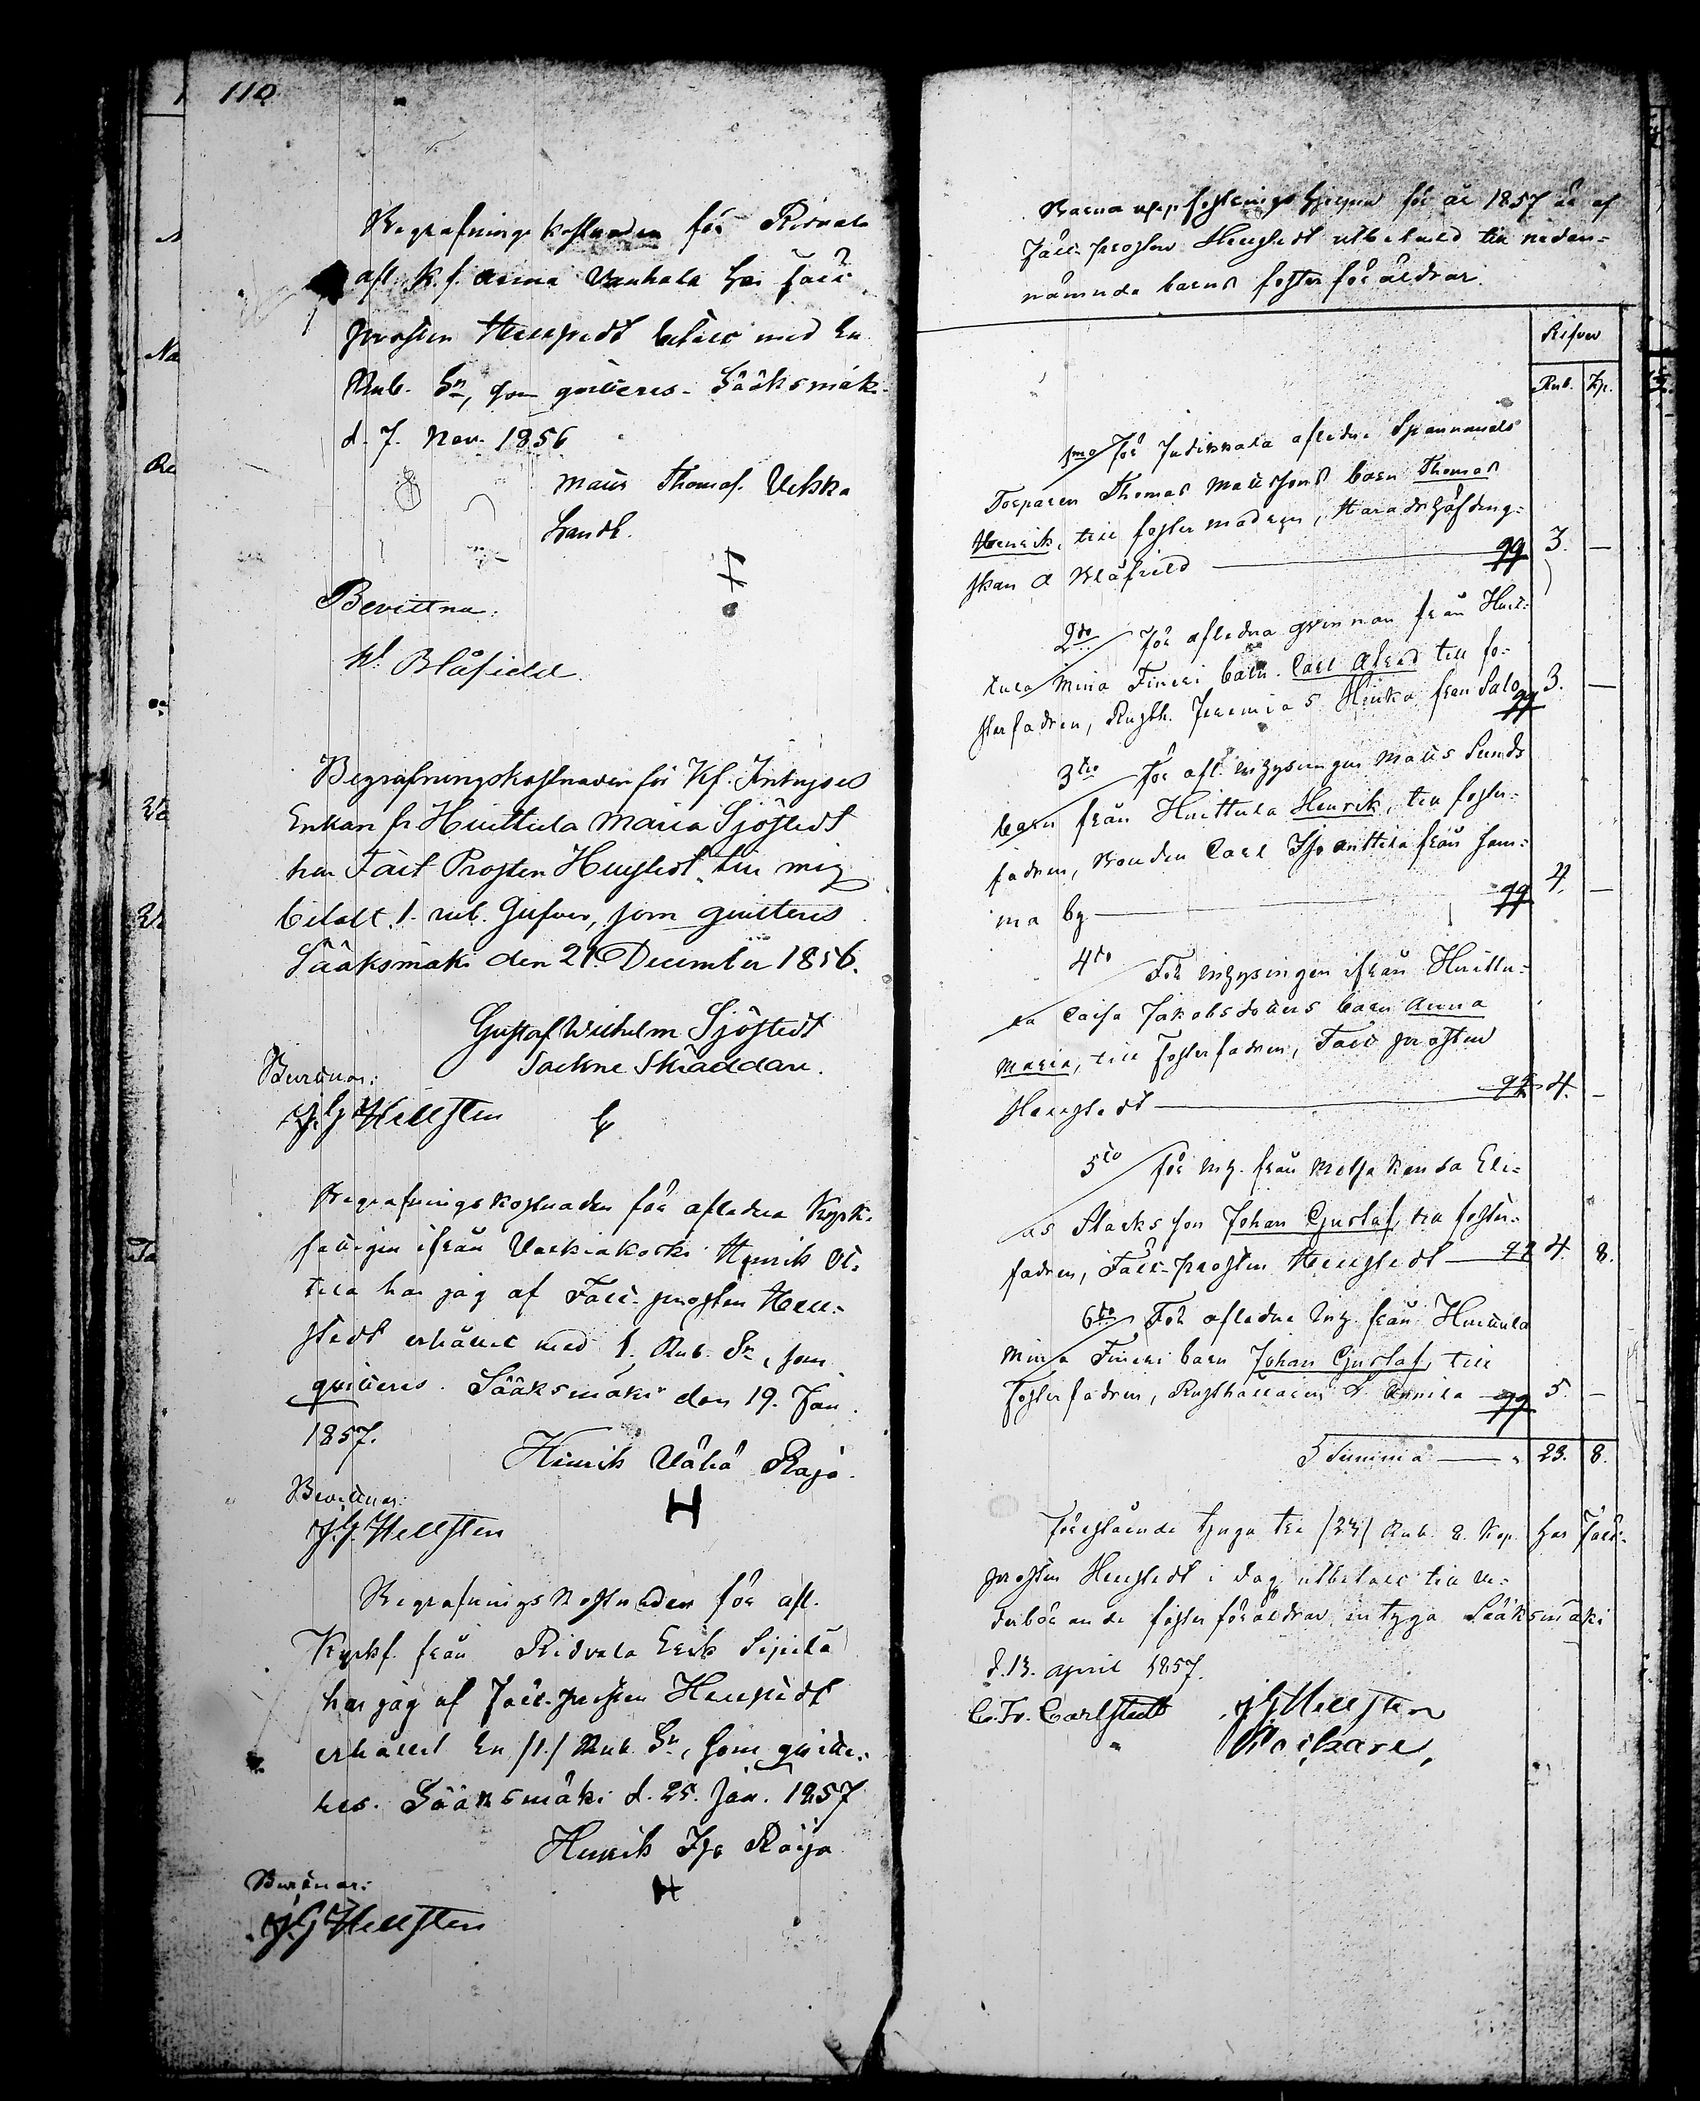 110
Begrafningskostnaden för Ridvala
afl. K. f. Anna Vanhala har Fält
Prosten Hellstedt betalt med En
Rub. Sr, som qvitteras. Sääksmäki
d. 7. Nov. 1856
Matts Thomas. Uskka
Landt.
Bevittna:
W. Blåfield.
Begrafningskostnaden för Kf. Inhyses
Enkan fr Huittula Maria Sjöstedt
har Fält Prosten Hellstedt till mig
betalt 1. rub. Silfver, som qvitteras
Sääksmäki den 21. December 1856.
Gustaf Wilhelm Sjöstedt
Sockne Skräddare.
Bevittnar:
J G Hellsten
Begrafningskostnaden för aflidna Kyrk-
fattigen ifrån Varkiakoski Henrik Ot-
tila har jag af Fält-prosten Hell-
stedt erhållit med 1. Rub. Sr, som
qvitteras. Sääksmäki den 19. Jan.
1857.
Henrik Vähä Raja.
Bevittnar:
J G Hellsten
Begrafnings Kostnaden för afl.
Kyrkf. från Ridvala Erik Sipilä
har jag af Fält-prosten Hellstedt
erhållit En /1./ Rub. Sr, som qvitte-
ras. Sääksmäki d. 25. Jan. 1857
Henrik Iso Raija
Bevittnar:
J G Hellsten
Barna uppfostrings hjelpen för år 1857 är af
Fält-prosten Hellstedt utbetald till neden-
nämnda barns fosterföräldrar.
Silfver
Rub. Kp.
1mo För Jutikkala aflidne Spannmåls
Torparen Thomas Mattssons barn Thomas
Henrik, till fostermodren, Häradshöfding-
skan A Blåfield 3. —
2do För aflidna qvinnan från Huit-
tula Mina Fineri barn Carl Alfred till fo-
sterfadren, Rusth. Jeremias Heikka från Salo 3. —
3tio För afl. inhysingen Matts Lunds
barn från Huittula Henrik, till foster-
fadren, Bonden Carl Iso Anttila från sam-
ma by 4. —
4to För inhysingen ifrån Huittu-
la Caisa Jakobsdotters barn Anna
Maria, till Fosterfadren, Fält prosten
Hellstedt 4. —
5to för inh. från Metsäkansa Eli-
as Starks son Johan Gustaf, till foster-
fadren, Fält-prosten Hellstedt 4. 8.
6to För aflidna inh. från Huittula
Mina Fineri barn Johan Gustaf, till
Fosterfadren, Rusthållaren A. Annila 5. —
Summa 23. 8.
Förestående tjugo tre /23/ Rub. 8. Kop. har Fält-
prosten Hellstedt i dag utbetalt till ve-
derbörande fosterföräldrar, intyga Sääksmäki
d. 13. April 1857.
C. Fr. Carlstedt J G Hellsten